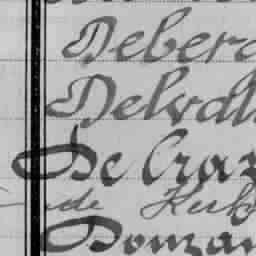 Debero
Delvall
De Craz
de Kub
Donzan